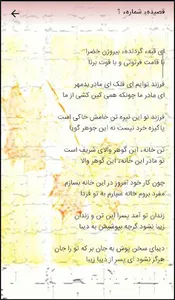 قصیدهٔ شمارهٔ ۱
ای قبهٔ گردندهٔ بی‌روزن خضرا
با قامت فرتوتی و با قوت برنا
فرزند توایم ای فلک ای مادر بدمهر
ای مادر ما چونکه همی کین کشی از ما
فرزند تو این تیره تن خامش خاکی است
پاکیزه خرد نیست نه این جوهر گویا
تن خانهٔ این گوهر والای شریف است
تو مادر این خانهٔ این گوهر والا
چون کار خود امروز در این خانه بسازم
مفرد بروم خانه سپارم به تو فردا
زندان تو آمد پسرا این تن و زندان
زیبا نشود گرچه بپوشیش به دیبا
دیبای سخن پوش به جان بر که تو را جان
هرگز نشود ای پسر از دیبا زیبا